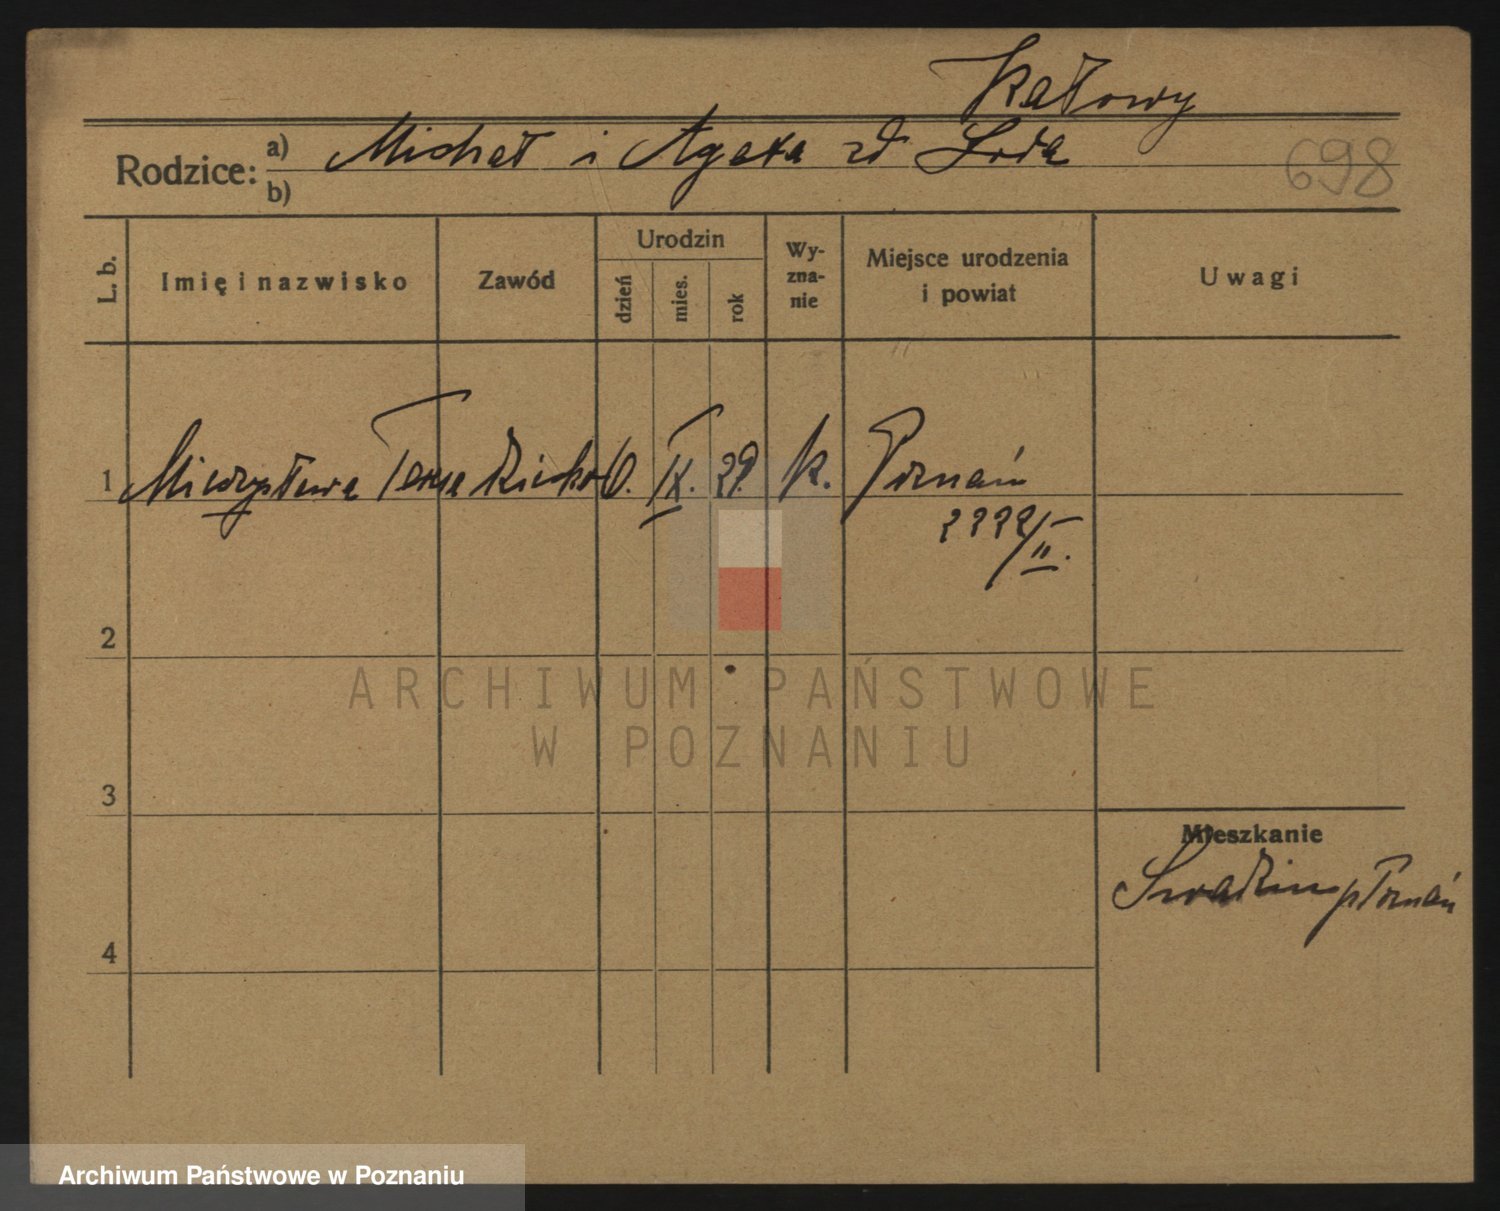 Kałowy
Rodzice: a) Michał i Agata zd
b)
698
L. b.
Imię i nazwisko
Zawód
Urodzin
dzień
mies.
rok
Wy-
zna-
nie
Miejsce urodzenia
i powiat
Uwagi
1 Mieczysława Teresa 6. IX. 29. k. Poznań
2222/II.
2
3
4
Mieszkanie
Swadzim p Poznań
ARCHIWUM PAŃSTWOWE
W POZNANIU
Archiwum Państwowe w Poznaniu